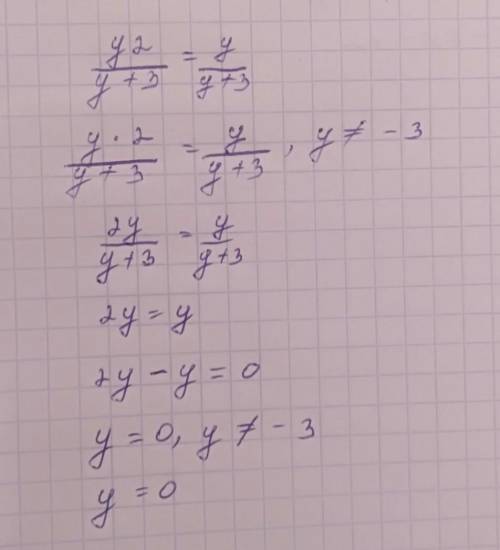 y2/(y+3) = y/(y+3)
y·2/(y+3) = y/(y+3), y≠-3
2y/(y+3) = y/(y+3)
2y=y
2y-y=0
y=0, y≠-3
y=0